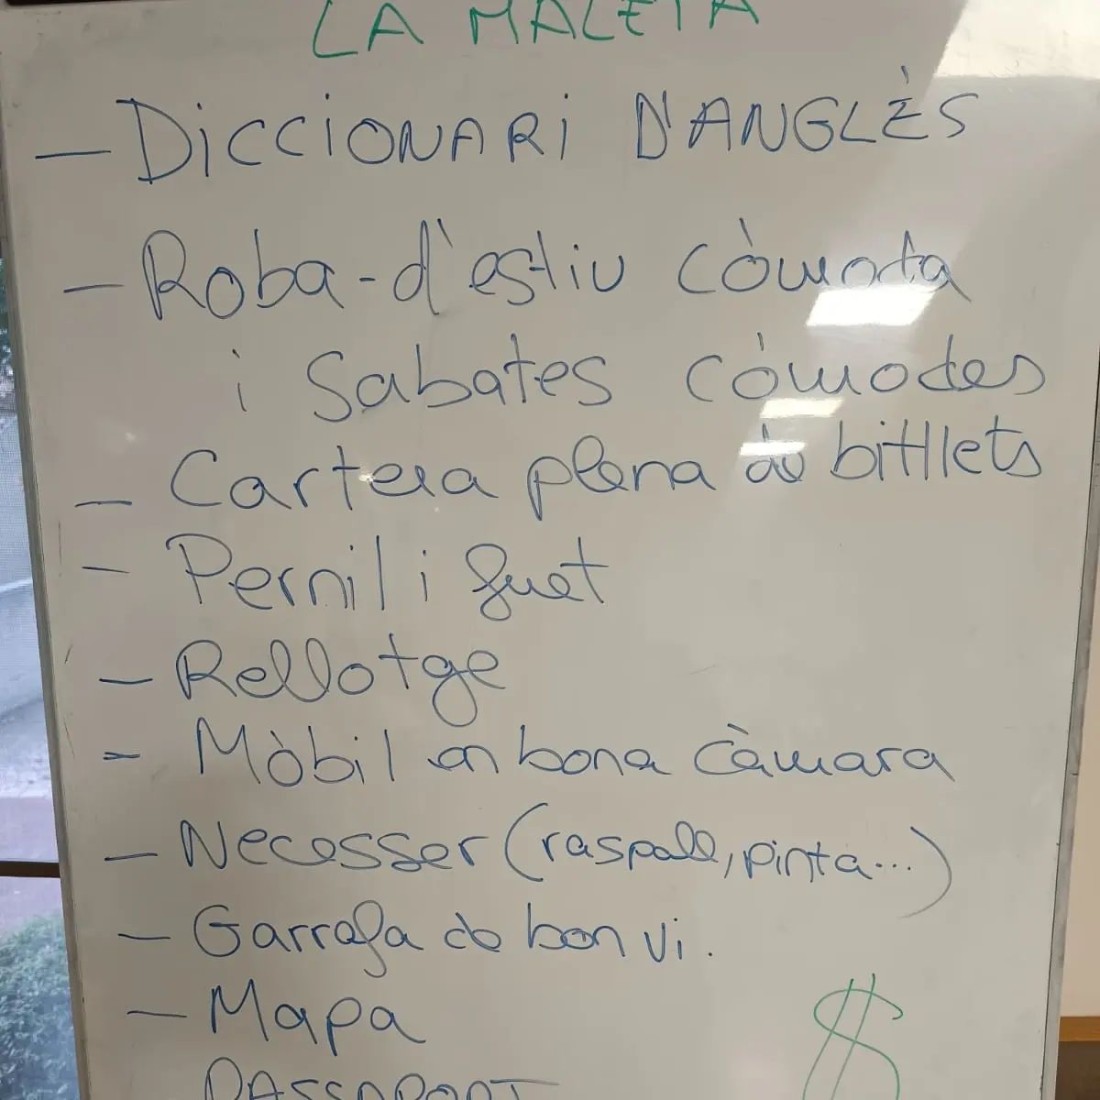 LA MALETA
- DiccioNARi D'ANGLÈS
- Roba-d'estiu còmoda
i Sabates còmodes
- Cartera plena de bitllets
- Pernil i fuet
- Rellotge
- Mòbil en bona càmara
- Necesser (raspall, pinta...)
- Garrafa de bon vi.
- Mapa
$
PASSAPORT